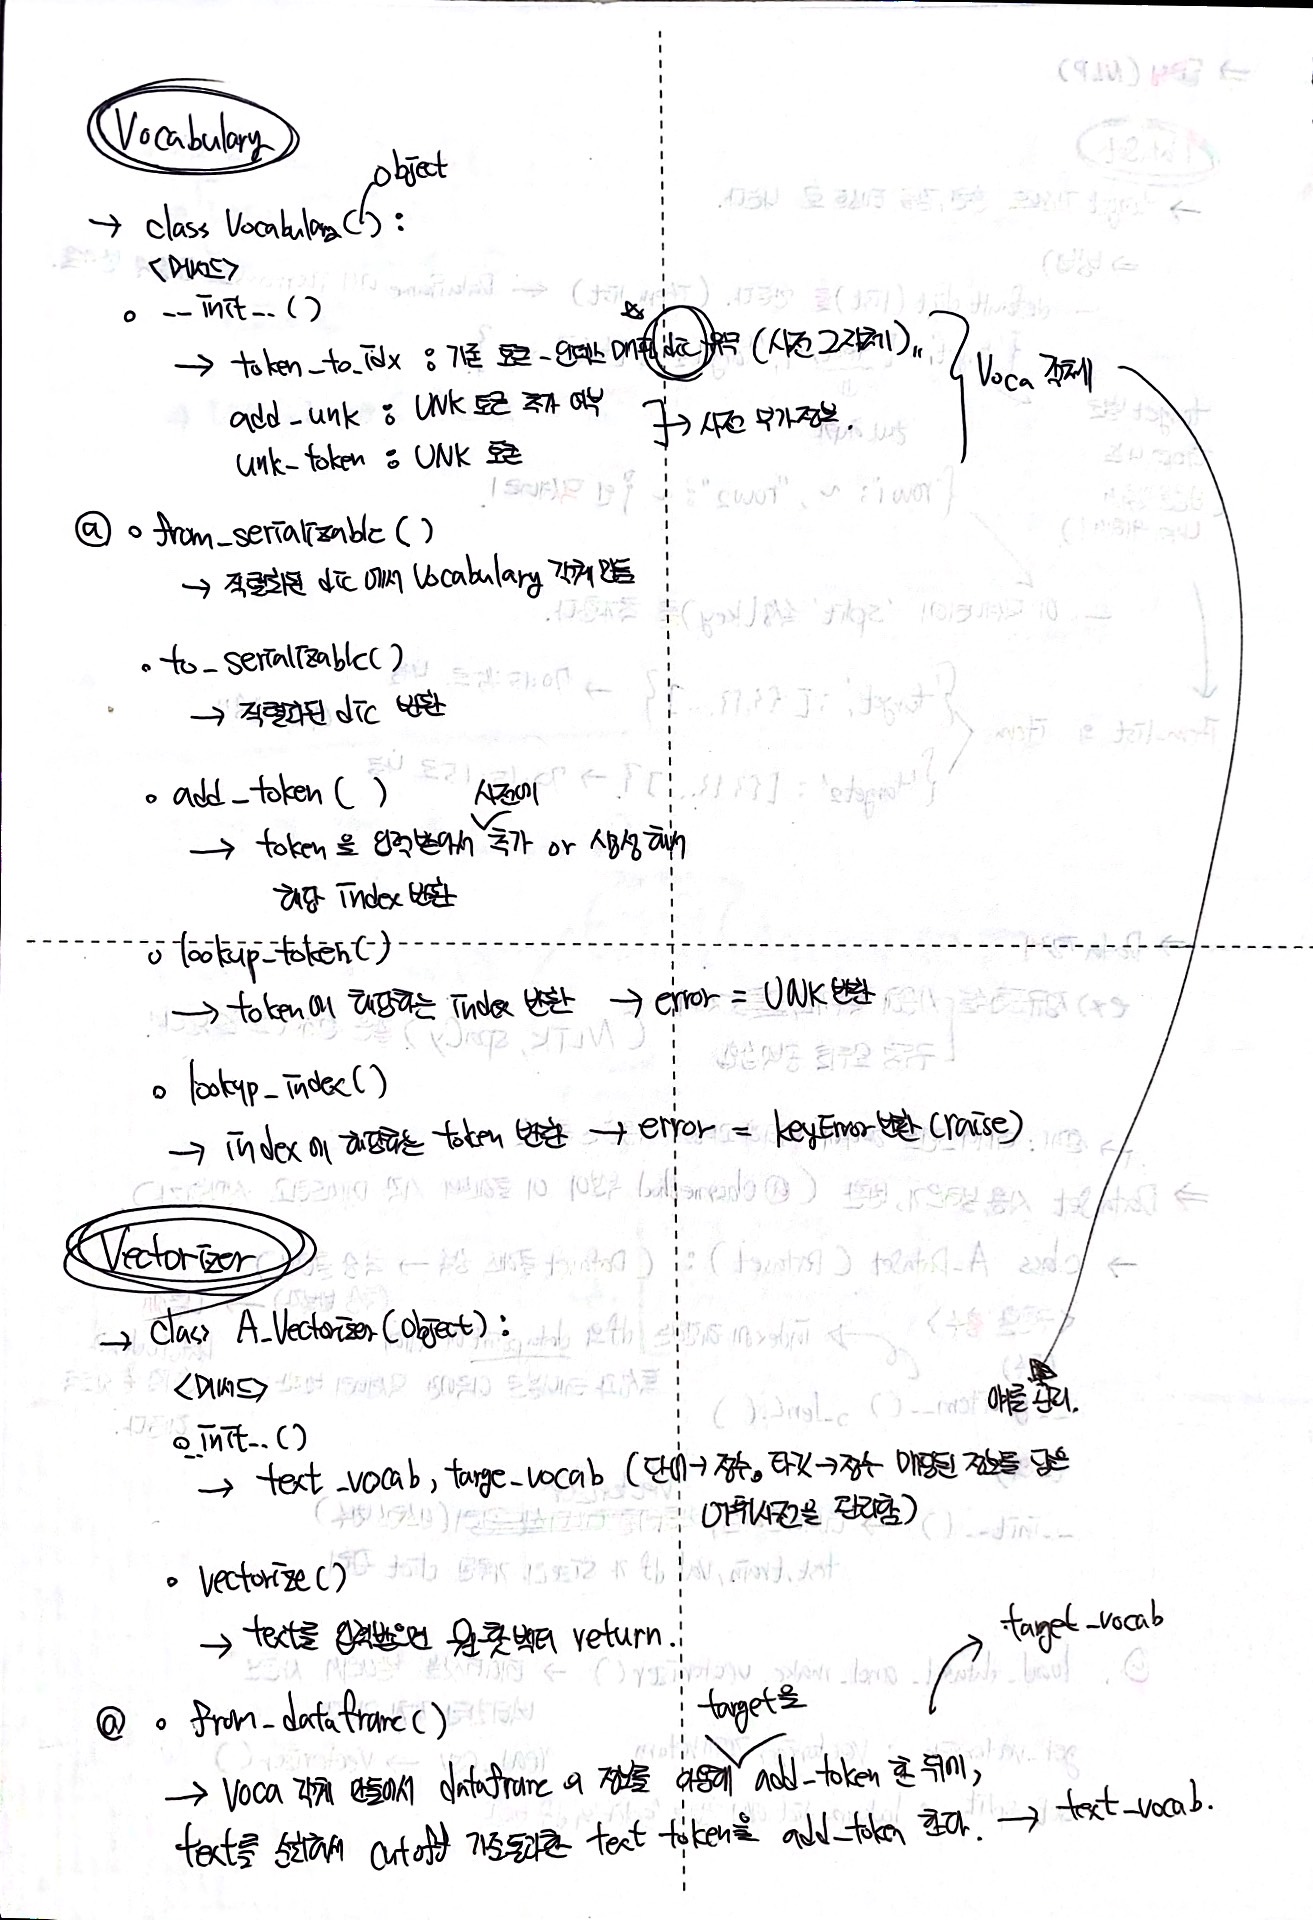 Vocabulary
object
→ class Vocabulary():
<메서드>
○ __init__()
→ token_to_idx : 기존 토큰-인덱스 매핑 dic 유무 (사전 그 자체)
add_unk : UNK 토큰 추가 여부
→ 사전 부가정보.
unk_token : UNK 토큰
Voca 객체
ⓐ ○ from_serializable()
→ 직렬화된 dic에서 Vocabulary 객체 만듦
○ to_serializable()
→ 직렬화된 dic 반환
○ add_token( )
사전에
→ token을 입력받아서 추가 or 생성해서
해당 index 반환
○ lookup_token()
→ token에 해당하는 index 반환 → error = UNK 반환
○ lookup_index()
→ index에 해당하는 token 반환 → error = keyError 반환 (raise)
Vectorizer
→ class A_Vectorizer(object):
<메서드>
얘를 관리.
○ __init__()
→ text_vocab, targe_vocab (단어→정수, 타깃→정수 매핑된 정보를 담은
어휘사전을 관리함)
○ vectorize()
→ text를 입력받으면 원핫벡터 return.
target_vocab
target을
ⓐ ○ from_dataframe()
→ Voca 객체 만들어서 dataframe의 정보를 이용해 add_token 한 뒤에,
text를 순회해서 cutoff 기준통과한 text token을 add_token 한다. → text_vocab.